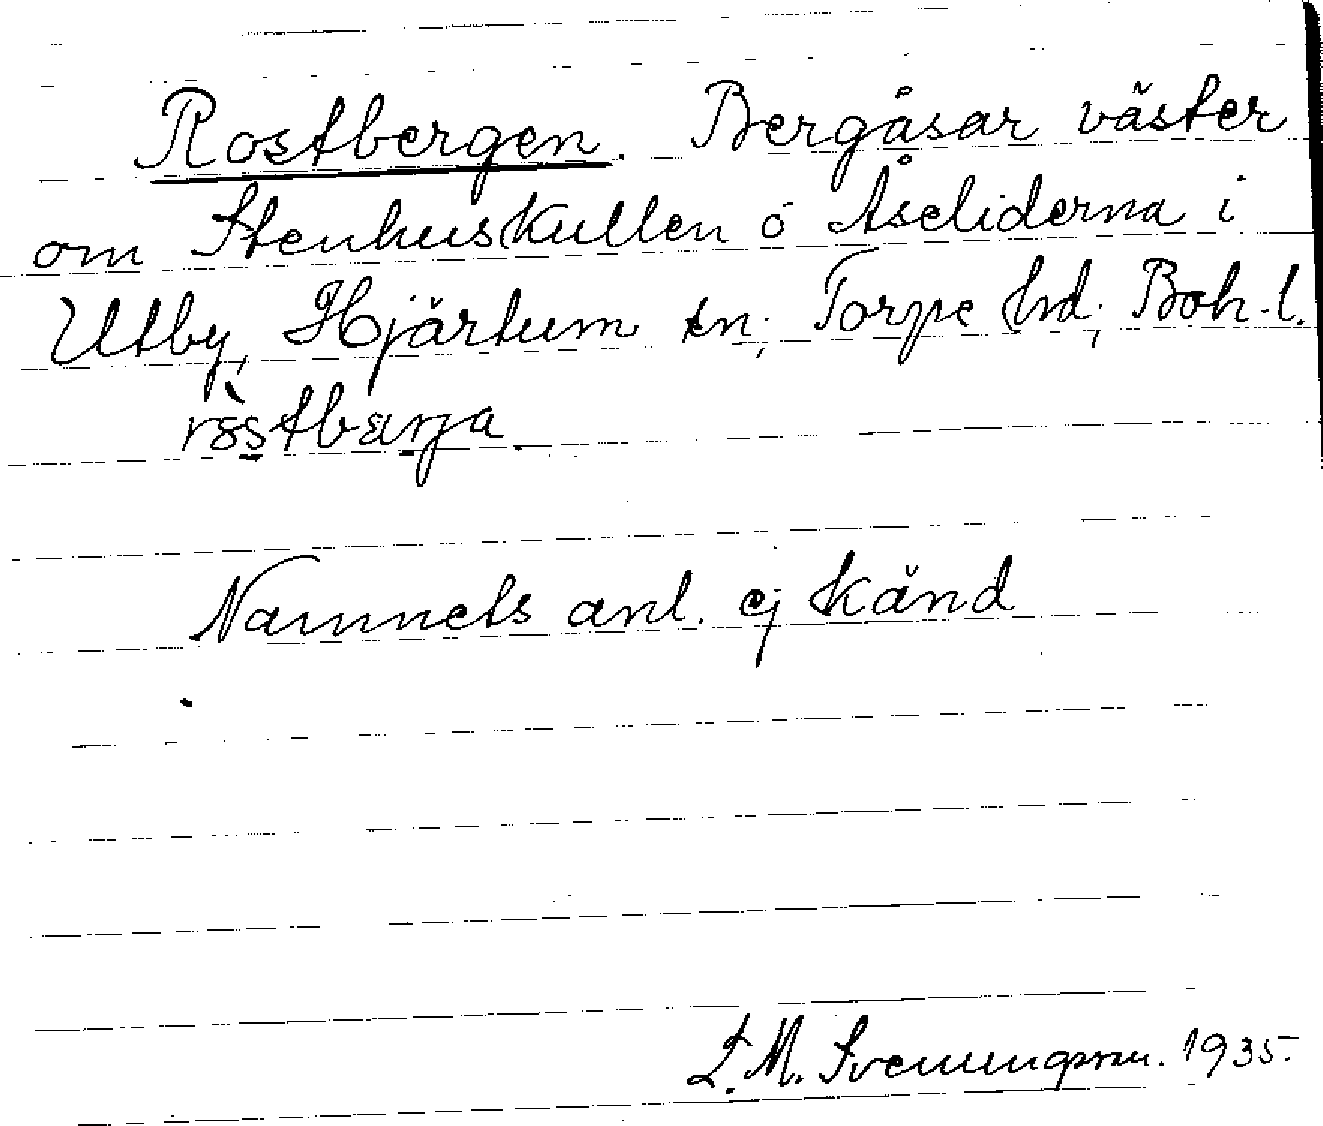 Rostbergen. Bergåsar väster
om Stenhuskullen o Åseliderna i
Utby, Hjärtum sn; Torpe hd; Boh. l.
Namnets anl. ej känd
L. M. Svenungsson. 1935.